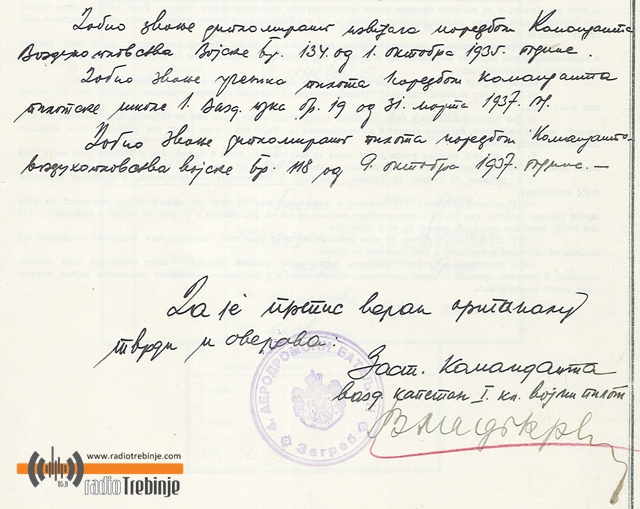 Добио звање дипломираног извиђача наредбом Команданта
Ваздухопловства Војске бр. 134 од 1. октобра 1935. године.
Добио звање ученика пилота Наредбом команданта
пилотске школе 1. Вазд. пука бр. 19 од 31. марта 1937. г.
Добио звање дипломираног пилота наредбом Команданта
Ваздухопловства војске бр. 118 од 9. октобра 1937. године. —
Да је препис веран оригиналу
тврди и оверава:
Заст. Команданта
вазд. капетан I. кл. војни пилот
АЕРОДРОМСКА
Загреб
www.radiotrebinje.com
95,0
radio Trebinje